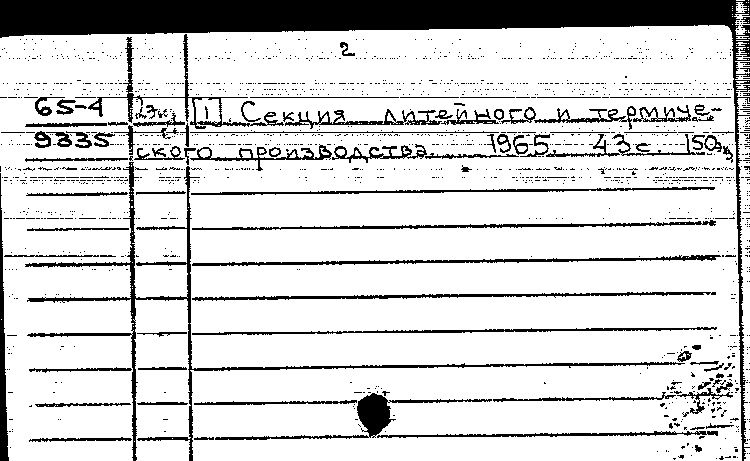 2
65-4 2экз [1]. Секция литейного и термиче-
9335 ского производства. 1965. 43с. 150экз